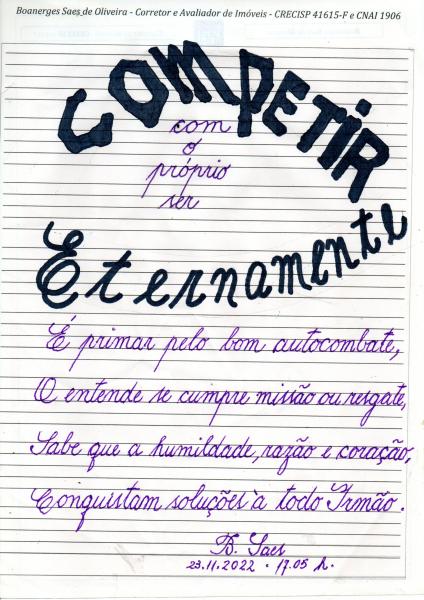 Boanerges Saes de Oliveira - Corretor e Avaliador de Imóveis - CRECISP 41615-F e CNAI 1906
COMPETIR
com
o
próprio
ser
Eternamente
É primar pelo bom autocombate,
O entende se cumpre missão ou resgate,
Sabe que a humildade, razão e coração,
Conquistam soluções à todo Irmão.
B. Saes
23.11.2022 - 17.05 h.